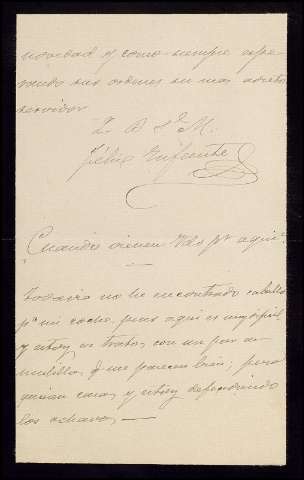 novedad y como siempre espe-
rando sus ordenes su mas adicto
servidor
L. B. S. M.
Félix Infante
Cuando vienen Vds pr aquí?
Todavia no he encontrado caballo
pa mi coche, pues aqui es muy dificil
y estoy en tratos con un par de
mulillas q. me parecen bien; pero
piden caro, y estoy defendiendo
los ochavos,